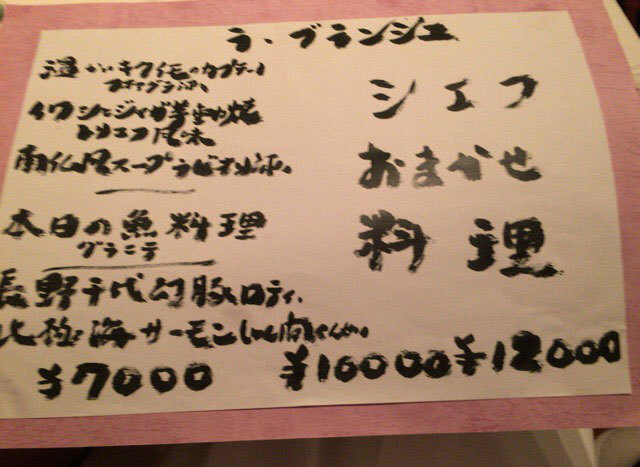 ラ・ブランシュ
温かいキクイモのカプチーノ
フォアグラ添え
イワシとじゃが芋の重ね焼
トリュフ風味
南仏風スープ
本日の魚料理
グラニテ
長野千代幻豚ロティ
北極海サーモン
¥7000
シェフ
おまかせ
料理
¥10000 ¥12000